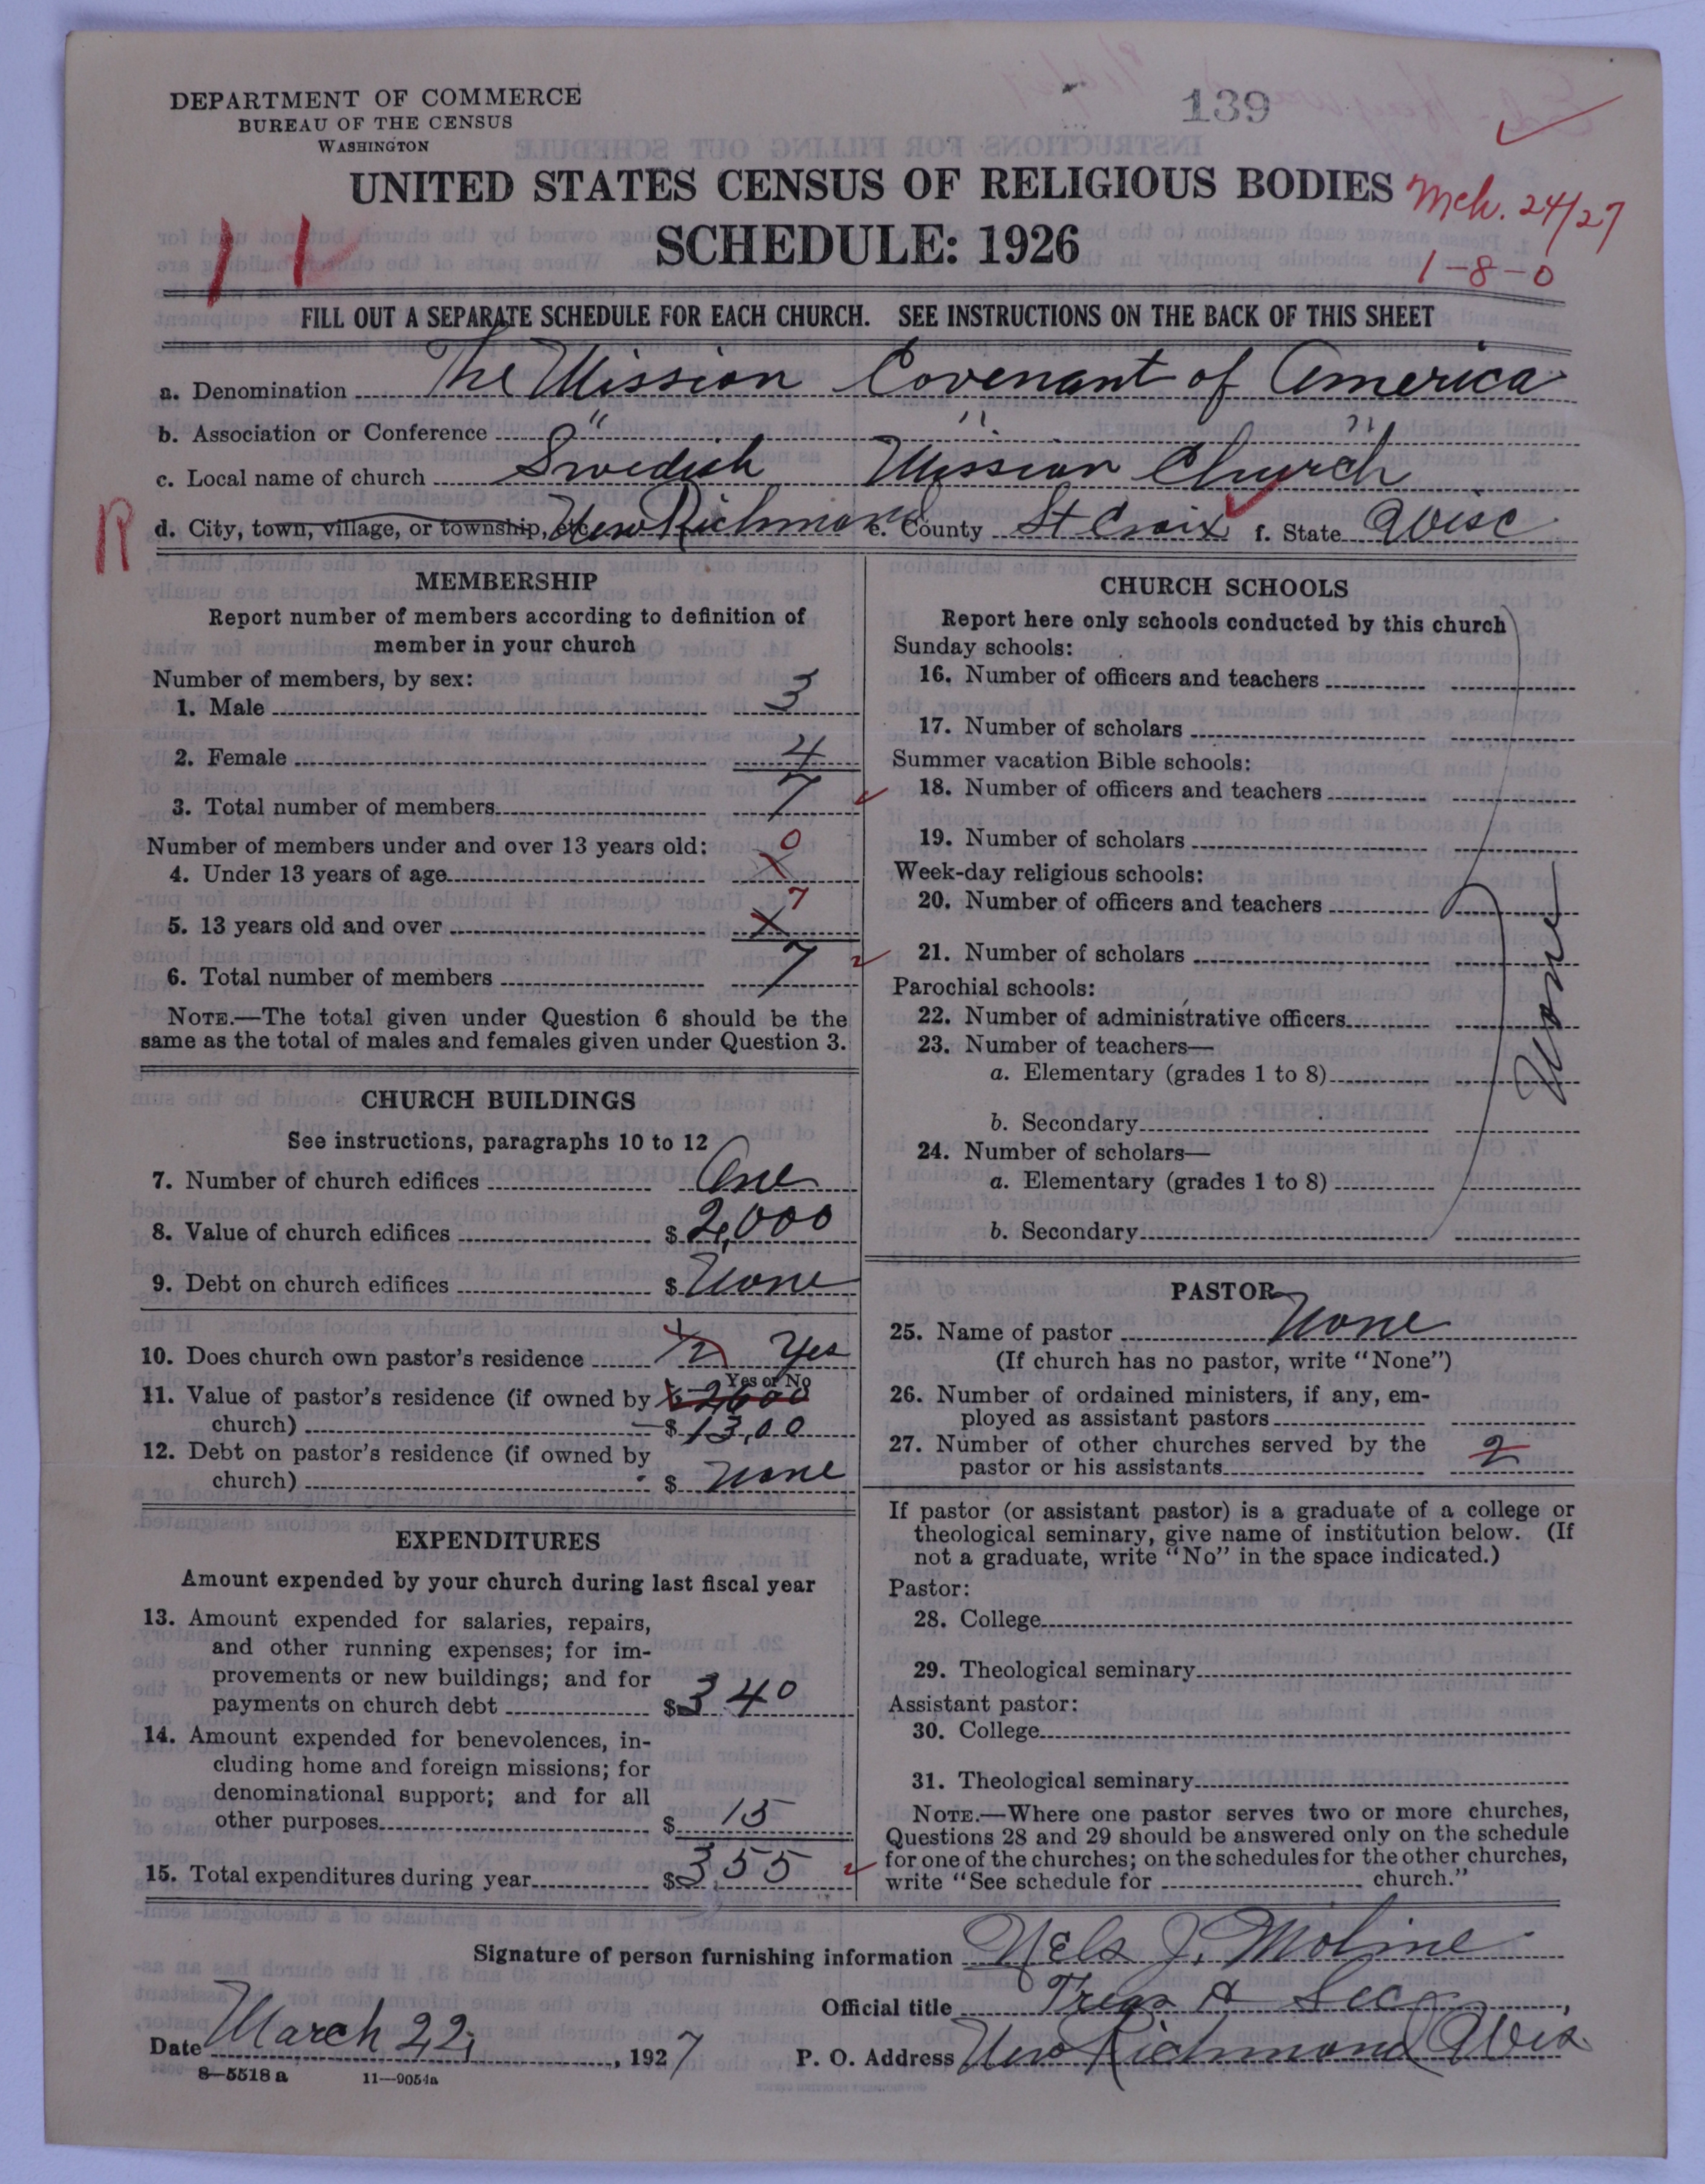 DEPARTMENT OF COMMERCE
BUREAU OF THE CENSUS
WASHINGTON
139
UNITED STATES CENSUS OF RELIGIOUS BODIES
Mch. 24/27
SCHEDULE: 1926
1-8-0
11
FILL OUT A SEPARATE SCHEDULE FOR EACH CHURCH. SEE INSTRUCTIONS ON THE BACK OF THIS SHEET
a. Denomination The Mission Covenant of America
b. Association or Conference " " "
c. Local name of church Swedish Mission Church
R
d. City, town, village, or township, etc. New Richmond e. County St Croix f. State Wisc
MEMBERSHIP
Report number of members according to definition of
member in your church
Number of members, by sex:
1. Male 3
2. Female 4
3. Total number of members 7
Number of members under and over 13 years old:
0
4. Under 13 years of age X
7
5. 13 years old and over X
6. Total number of members 7
NOTE.—The total given under Question 6 should be the
same as the total of males and females given under Question 3.
CHURCH BUILDINGS
See instructions, paragraphs 10 to 12
7. Number of church edifices One
8. Value of church edifices $ 2,000
9. Debt on church edifices $ None
10. Does church own pastor's residence 1/2 Yes
Yes or No
11. Value of pastor's residence (if owned by 2600
church) $ 13,00
12. Debt on pastor's residence (if owned by
church) $ None
EXPENDITURES
Amount expended by your church during last fiscal year
13. Amount expended for salaries, repairs,
and other running expenses; for im-
provements or new buildings; and for
payments on church debt $ 340
14. Amount expended for benevolences, in-
cluding home and foreign missions; for
denominational support; and for all
other purposes $ 15
15. Total expenditures during year $ 355
CHURCH SCHOOLS
Report here only schools conducted by this church
Sunday schools:
16. Number of officers and teachers
17. Number of scholars
Summer vacation Bible schools:
18. Number of officers and teachers
19. Number of scholars
Week-day religious schools:
20. Number of officers and teachers
21. Number of scholars
None
Parochial schools:
22. Number of administrative officers
23. Number of teachers—
a. Elementary (grades 1 to 8)
b. Secondary
24. Number of scholars—
a. Elementary (grades 1 to 8)
b. Secondary
PASTOR
25. Name of pastor None
(If church has no pastor, write "None")
26. Number of ordained ministers, if any, em-
ployed as assistant pastors
27. Number of other churches served by the
pastor or his assistants 2
If pastor (or assistant pastor) is a graduate of a college or
theological seminary, give name of institution below. (If
not a graduate, write "No" in the space indicated.)
Pastor:
28. College
29. Theological seminary
Assistant pastor:
30. College
31. Theological seminary
NOTE.—Where one pastor serves two or more churches,
Questions 28 and 29 should be answered only on the schedule
for one of the churches; on the schedules for the other churches,
write "See schedule for church."
Signature of person furnishing information Nels J. Moline
Official title Treas & Sec,
Date March 22, 1927 P. O. Address New Richmond Wis.
8—5518 a 11—9054a